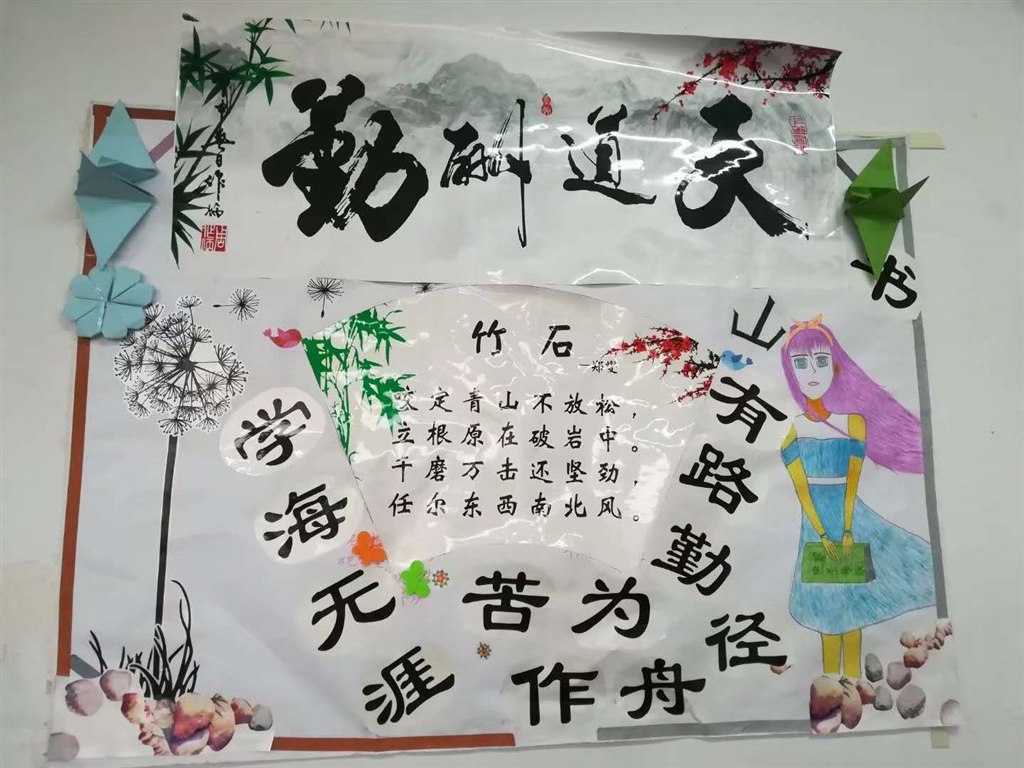 天道酬勤
竹石
—郑燮
咬定青山不放松，
立根原在破岩中。
千磨万击还坚劲，
任尔东西南北风。
书山有路勤为径
学海无涯苦作舟